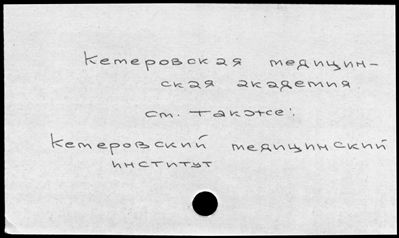 Кемеровская медицин-
ская академия.
см. также:
Кемеровский медицинский
институт